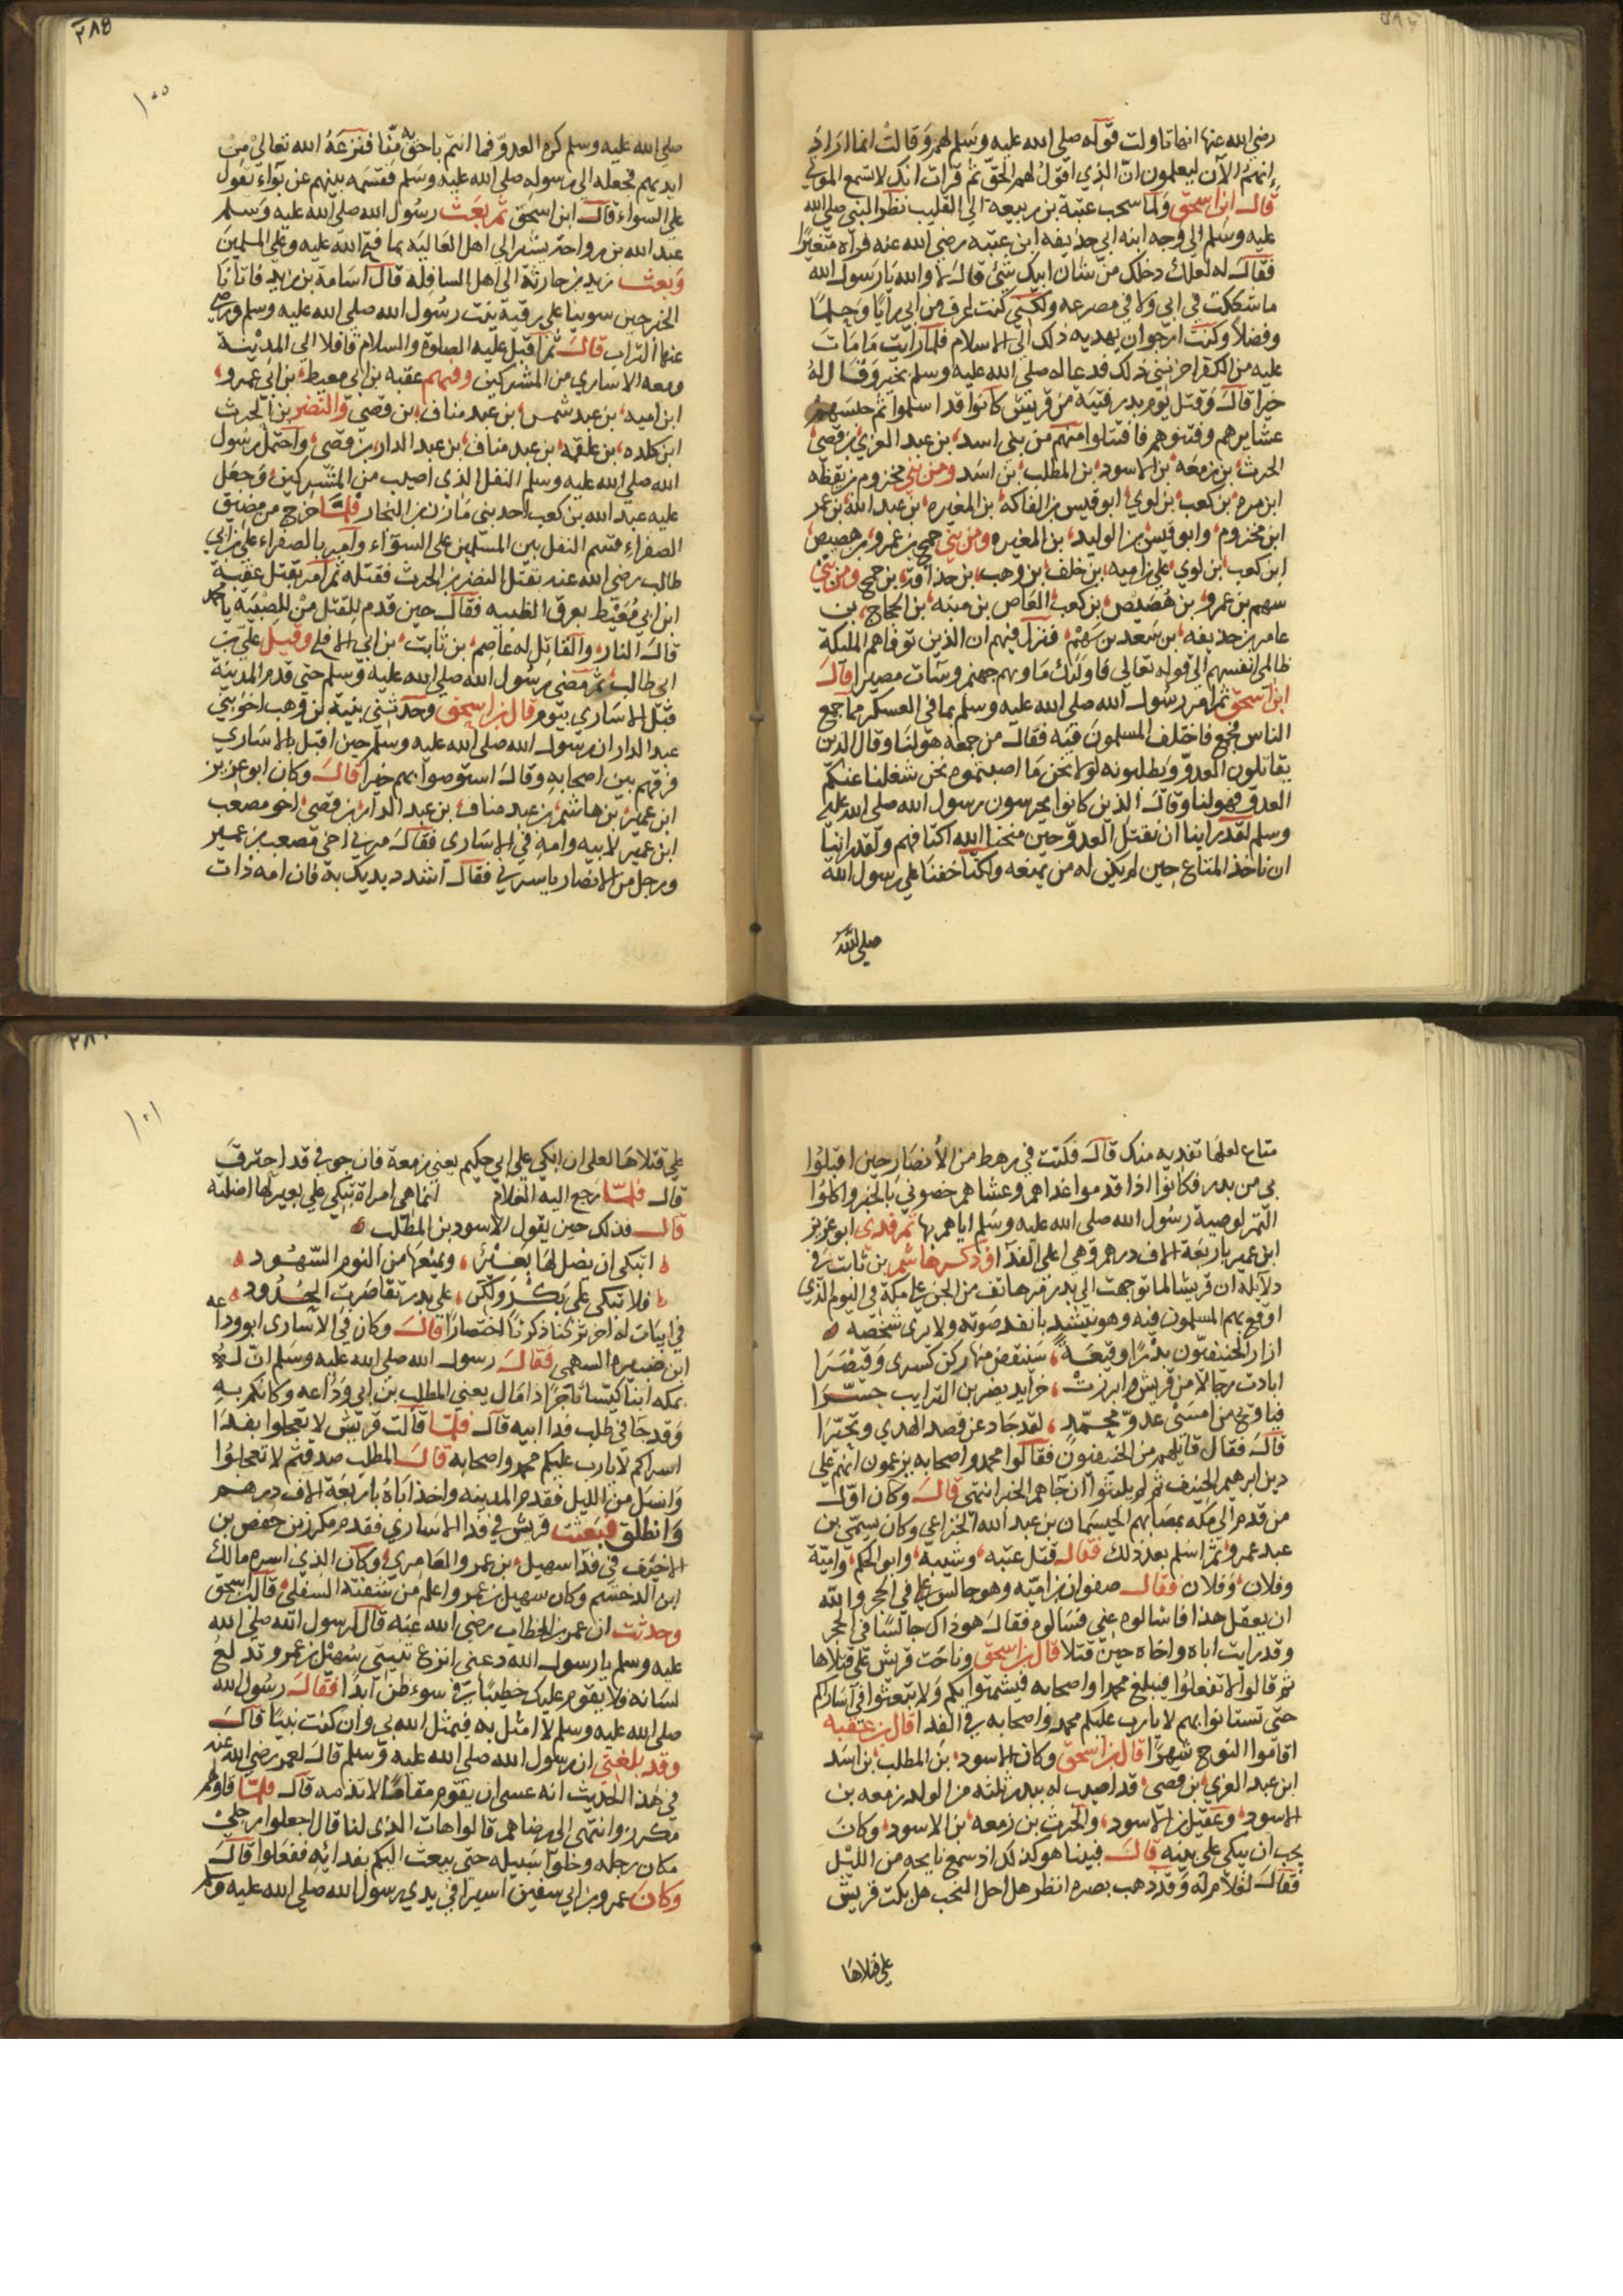 رضي الله عنها انها تاولت قوله صلى الله عليه وسلم لهم وقالت انما اراد
انهم الآن ليعلمون ان الذي اقول لهم الحق ثم قرات انك لا تسمع الموتى
قال ابن اسحق ولما سحب عتبة بن ربيعة الى القليب نظر النبي صلى الله
عليه وسلم الى وجه ابنه ابي حذيفه ابن عتبه رضي الله عنه فرآه متغيرا
فقال له لعلك دخلك من شان ابيك شيئ قال لا والله يارسول الله
ما شككت في ابي ولا في مصرعه ولكني كنت اعرف من ابي رايا وحلما
وفضلا وكنت ارجو ان يهديه ذلك الى الاسلام فلما رايت ما مات
عليه من الكفر احزنني ذلك فدعا له صلى الله عليه وسلم بخير وقال له
خيرا قال وقتل يوم بدر فتية من قريش كانوا قد اسلموا ثم حبسهم
عشايرهم وفتنوهم فافتتنوا منهم من بني اسد بن عبد العزي بن قصي
الحرث بن زمعه بن الاسود بن المطلب بن اسد ومن بني مخزوم بن يقظه
ابن مره بن كعب بن لوي ابو قيس بن الفاكه بن المغيره بن عبد الله بن عمر
ابن مخزوم وابو قيس بن الوليد بن المغيره ومن بني جمح بن عمرو بن هصيص
ابن كعب بن لوي علي بن اميه بن خلف بن وهب بن حذافة بن جمح ومن بني
سهم بن عمرو بن هصيص بن كعب العاص بن منبه بن الحجاج بن
عامر بن حذيفه بن سعد بن سهم فنزل فيهم ان الذين توفاهم الملئكة
ظالمى انفسهم الى قوله تعالى فاولئك ماويهم جهنم وسآت مصيرا قال
ابن اسحق ثم امر رسول الله صلى الله عليه وسلم بما في العسكر مما جمع
الناس فجمع فاختلف المسلمون فيه فقال من جمعه هو لنا وقال الذين
يقاتلون العدو ويطلبونه لولا نحن ما اصبتموه نحن شغلنا عنكم
العدو فهو لنا وقال الذين كانوا يحرسون رسول الله صلى الله عليه
وسلم لقد راينا ان نقتل العدو حين منحنا الله اكتافهم ولقد راينا
ان ناخذ المتاع حين لم يكن له من يمنعه ولكنا خفنا على رسول الله
صلى الله
٢٨٥
١٠٠
صلى الله عليه وسلم كره العدو فما انتم باحق به منا فنزعه الله تعالى من
ايديهم فجعله الى رسوله صلى الله عليه وسلم فقسمه بينهم عن بواء يقول
على السواء قال ابن اسحق ثم بعث رسول الله صلى الله عليه وسلم
عبد الله بن رواحة بشيرا الى اهل العاليه بما فتح الله عليه وعلى المسلمين
وبعث زيد بن حارثة الى اهل السافله قال اسامة بن زيد فاتانا
الخبر حين سوينا على رقية بنت رسول الله صلى الله عليه وسلم ورضي
عنها التراب قال ثم اقبل عليه الصلوة والسلام قافلا الى المدينة
ومعه الاسارى من المشركين وفيهم عقبه بن ابي معيط بن ابي عمرو
ابن اميه بن عبد شمس بن عبد مناف بن قصي والنضر بن الحرث
ابن كلده بن علقمه بن عبد مناف بن عبد الدار بن قصي واحتمل رسول
الله صلى الله عليه وسلم النفل الذي اصيب من المشركين وجعل
عليه عبد الله بن كعب احد بني مازن بن النجار فلما خرج من مضيق
الصفراء قسم النفل بين المسلمين على السوآء وامر بالصفراء علي بن ابي
طالب رضي الله عنه بقتل النضر بن الحرث فقتله ثم امر بقتل عقبة
ابن ابي معيط بعرق الظبيه فقال حين قدم للقتل من للصبية يا محمد
قال النار والقاتل له عاصم بن ثابت بن ابي الاقلح وقيل علي بن
ابي طالب ثم مضى رسول الله صلى الله عليه وسلم حتى قدم المدينة
قبل الاسارى بيوم قال بن اسحق وحدثني نبيه بن وهب اخو بني
عبد الدار ان رسول الله صلى الله عليه وسلم حين اقبل بالاسارى
فرقهم بين اصحابه وقال استوصوا بهم خيرا قال وكان ابو عزيز
ابن عمير بن هاشم بن عبد مناف بن عبد الدار بن قصي اخو مصعب
ابن عمير لابيه وامه في الاسارى فقال مر بي اخي مصعب بن عمير
ورجل من الانصار ياسرني فقال اشدد يديك به فان امه ذات
متاع لعلها تفديه منك قال فكنت في رهط من الأنصار حين اقبلوا
بي من بدر فكانوا اذا قدموا غداهم وعشاهم خصوني بالخبز واكلوا
التمر لوصية رسول الله صلى الله عليه وسلم اياهم بنا ثم فدى ابو عزيز
ابن عمير باربعة الاف درهم وهي اعلى الفدآ وذكر هاشم بن ثابت في
دلايله ان قريشا لما توجهت الى بدر مر هاتف من الجن على مكة في اليوم الذي
اوقع بهم المسلمون فيه وهو ينشد بانفد صوته ولا يرى شخصه
ازار الحنيفيون بدرا وقيعة سينقض منها ركن كسرى وقيصرا
ابادت رجالا من قريش وابرزت خرايد يضربن الترايب حسرا
فيا ويح من امسى عدو محمد لقد جاد عن قصد الهدي وتحيرا
قال فقال قايلهم من الحنيفيون فقالوا محمد واصحابه يزعمون انهم على
دين ابرهيم الحنيف ثم لم يلبثوا ان جآهم الخبر انتهى قال وكان اول
من قدم الى مكه بمصابهم الحيسمان بن عبد الله الخزاعي وكان يسمى بن
عبد عمرو ثم اسلم بعد ذلك فقال قتل عتبه وشيبه وابو الحكم وامية
وفلان وفلان فقال صفوان بن اميه وهو جالس في الحجر والله
ان يعقل هذا فاسالوه عني فسالوه فقال هو ذاك جالسا في الحجر
وقد رايت اباه واخاه حين قتلا قال بن اسحق وناحت قريش على قتلاها
ثم قالوا لا تفعلوا فيبلغ محمدا واصحابه فيشمتوا بكم ولا تبعثوا في اساراكم
حتى تستانوا بهم لا يارب عليكم محمد واصحابه في الفدا قال بن عقبه
اقاموا النوح شهرا قال بن اسحق وكان الاسود بن المطلب بن اسد
ابن عبد العزي بن قصي قد اصيب له ببدر ثلثه من الولد زمعه بن
الاسود وعقيل بن الاسود والحرث بن زمعه بن الاسود وكان
يحب ان يبكي على بنيه قال فبينا هو كذلك اذ سمع نايحه من الليل
فقال لغلام له وقد ذهب بصره انظر هل احل النحب هل بكت قريش
على قتلاها
١٠١
على قتلاها لعلى ان ابكي على ابي حكيم يعني زمعة فان جوفي قد احترق
قال فلما رجع اليه الغلام انما هي امراة تبكي على بعير لها اضلته
قال فذلك حين يقول الاسود بن المطلب
اتبكي ان يضل لها بعير ويمنعها من النوم السهود
فلا تبكي على بكر ولكن على بدر تقاصرت الجدود
في ابيات له اخر تركنا ذكرها اختصارا قال وكان في الاسارى ابو وداعه
ابن ضبيره السهمي فقال رسول الله صلى الله عليه وسلم ان له
بمكه ابنا كيسا تاجرا ذا مال يعني المطلب بن ابي وداعه وكانكم به
وقد جا في طلب فدا ابيه قال فلما قالت قريش لا تعجلوا بفدا
اسراكم لا يارب عليكم محمد واصحابه قال المطلب صدقتم لا تعجلوا
وانسل من الليل فقدم المدينه واخذ اباه باربعة الاف درهم
وانطلق فبعثت قريش في فدا الاسارى فقدم مكرز بن حفص بن
الاخيف في فدا سهيل بن عمرو العامري وكان الذي اسره مالك
ابن الدخشم وكان سهيل بن عمرو اعلم من شفته السفلى قال بن اسحق
وحدثت ان عمر بن الخطاب رضي الله عنه قال لرسول الله صلى الله
عليه وسلم يا رسول الله دعني انزع ثنيتي سهيل بن عمرو تدلع
لسانه فلا يقوم عليك خطيبا في موطن ابدا فقال رسول الله
صلى الله عليه وسلم لا امثل به فيمثل الله بي وان كنت نبيا قال
وقد بلغني ان رسول الله صلى الله عليه وسلم قال لعمر رضي الله عنه
في هذا الحديث انه عسى ان يقوم مقاما لا تذمه قال فلما قاولهم
مكرز وانتهى الى رضاهم قالوا هات الذي لنا قال اجعلوا رجلي
مكان رجله وخلوا سبيله حتى يبعث اليكم بفدائه ففعلوا قال
وكان عمرو بن ابي سفين اسيرا في يدي رسول الله صلى الله عليه وسلم